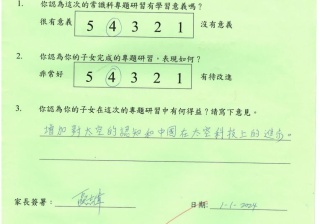 1. 你認為這次的常識科專題研習有學習意義嗎?
很有意義 5 4 3 2 1 沒有意義
2. 你認為你的子女完成的專題研習,表現如何?
非常好 5 4 3 2 1 有待改進
3. 你認為你的子女在這次的專題研習中有何得益?請寫下意見。
增加對太空的認知和中國在太空科技上的進步。
家長簽署: 日期: 1-1-2024